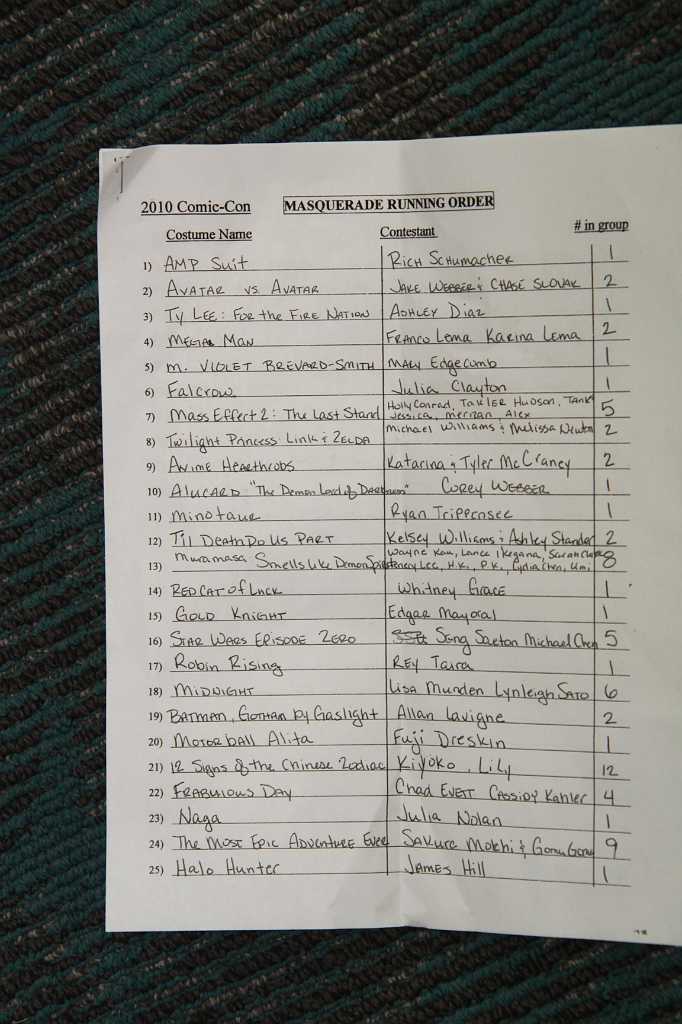 2010 Comic-Con MASQUERADE RUNNING ORDER
Costume Name Contestant # in group
1) AMP Suit Rich Schumacher 1
2) AVATAR VS. AVATAR JAKE WEBBER & CHASE SLOVAK 2
3) TY LEE: FOR the FIRE NATION ASHLEY Diaz 1
4) MEGA MAN FRANCO Lema Karina Lema 2
5) M. VIOLET BREVARD-SMITH MARY Edgecomb 1
6) Falcrow Julia Clayton 1
7) Mass Effect 2: The Last Stand Holly Conrad, Hudson, Tank Jessica, Alex 5
8) Twilight Princess Link & ZELDA Michael Williams & Melissa Newton 2
9) ANIME HEARTHROBS Katarina & Tyler McCraney 2
10) ALUCARD "The Demon Lord of Darkness" COREY WEBBER 1
11) Minotaur Ryan 1
12) Til Death Do Us PART Kelsey Williams & Ashley Stander 2
13) Muramasa Smells Like Demon Wayne Lance Ikegana, Sarah Lee, H.K., P.K., Lydia Chen, 8
14) RED CAT of Luck Whitney GRACE 1
15) GOLD KNIGHT Edgar Mayoral 1
16) STAR WARS EPISODE ZERO Sung Saeton Michael Chen 5
17) Robin Rising REY Taira 1
18) MIDNIGHT Lisa Munden Lynleigh SATO 6
19) BATMAN, GOTHAM by Gaslight Allan Lavigne 2
20) MOTORball Alita Fuji Dreskin 1
21) 12 Signs of the Chinese Zodiac Kiyoko, Lily 12
22) FRABULOUS DAY Chad EVETT CASSIDY Kahler 4
23) Naga Julia Nolan 1
24) The MOST EPIC ADVENTURE EVER Mokhi & 9
25) Halo Hunter JAMES Hill 1